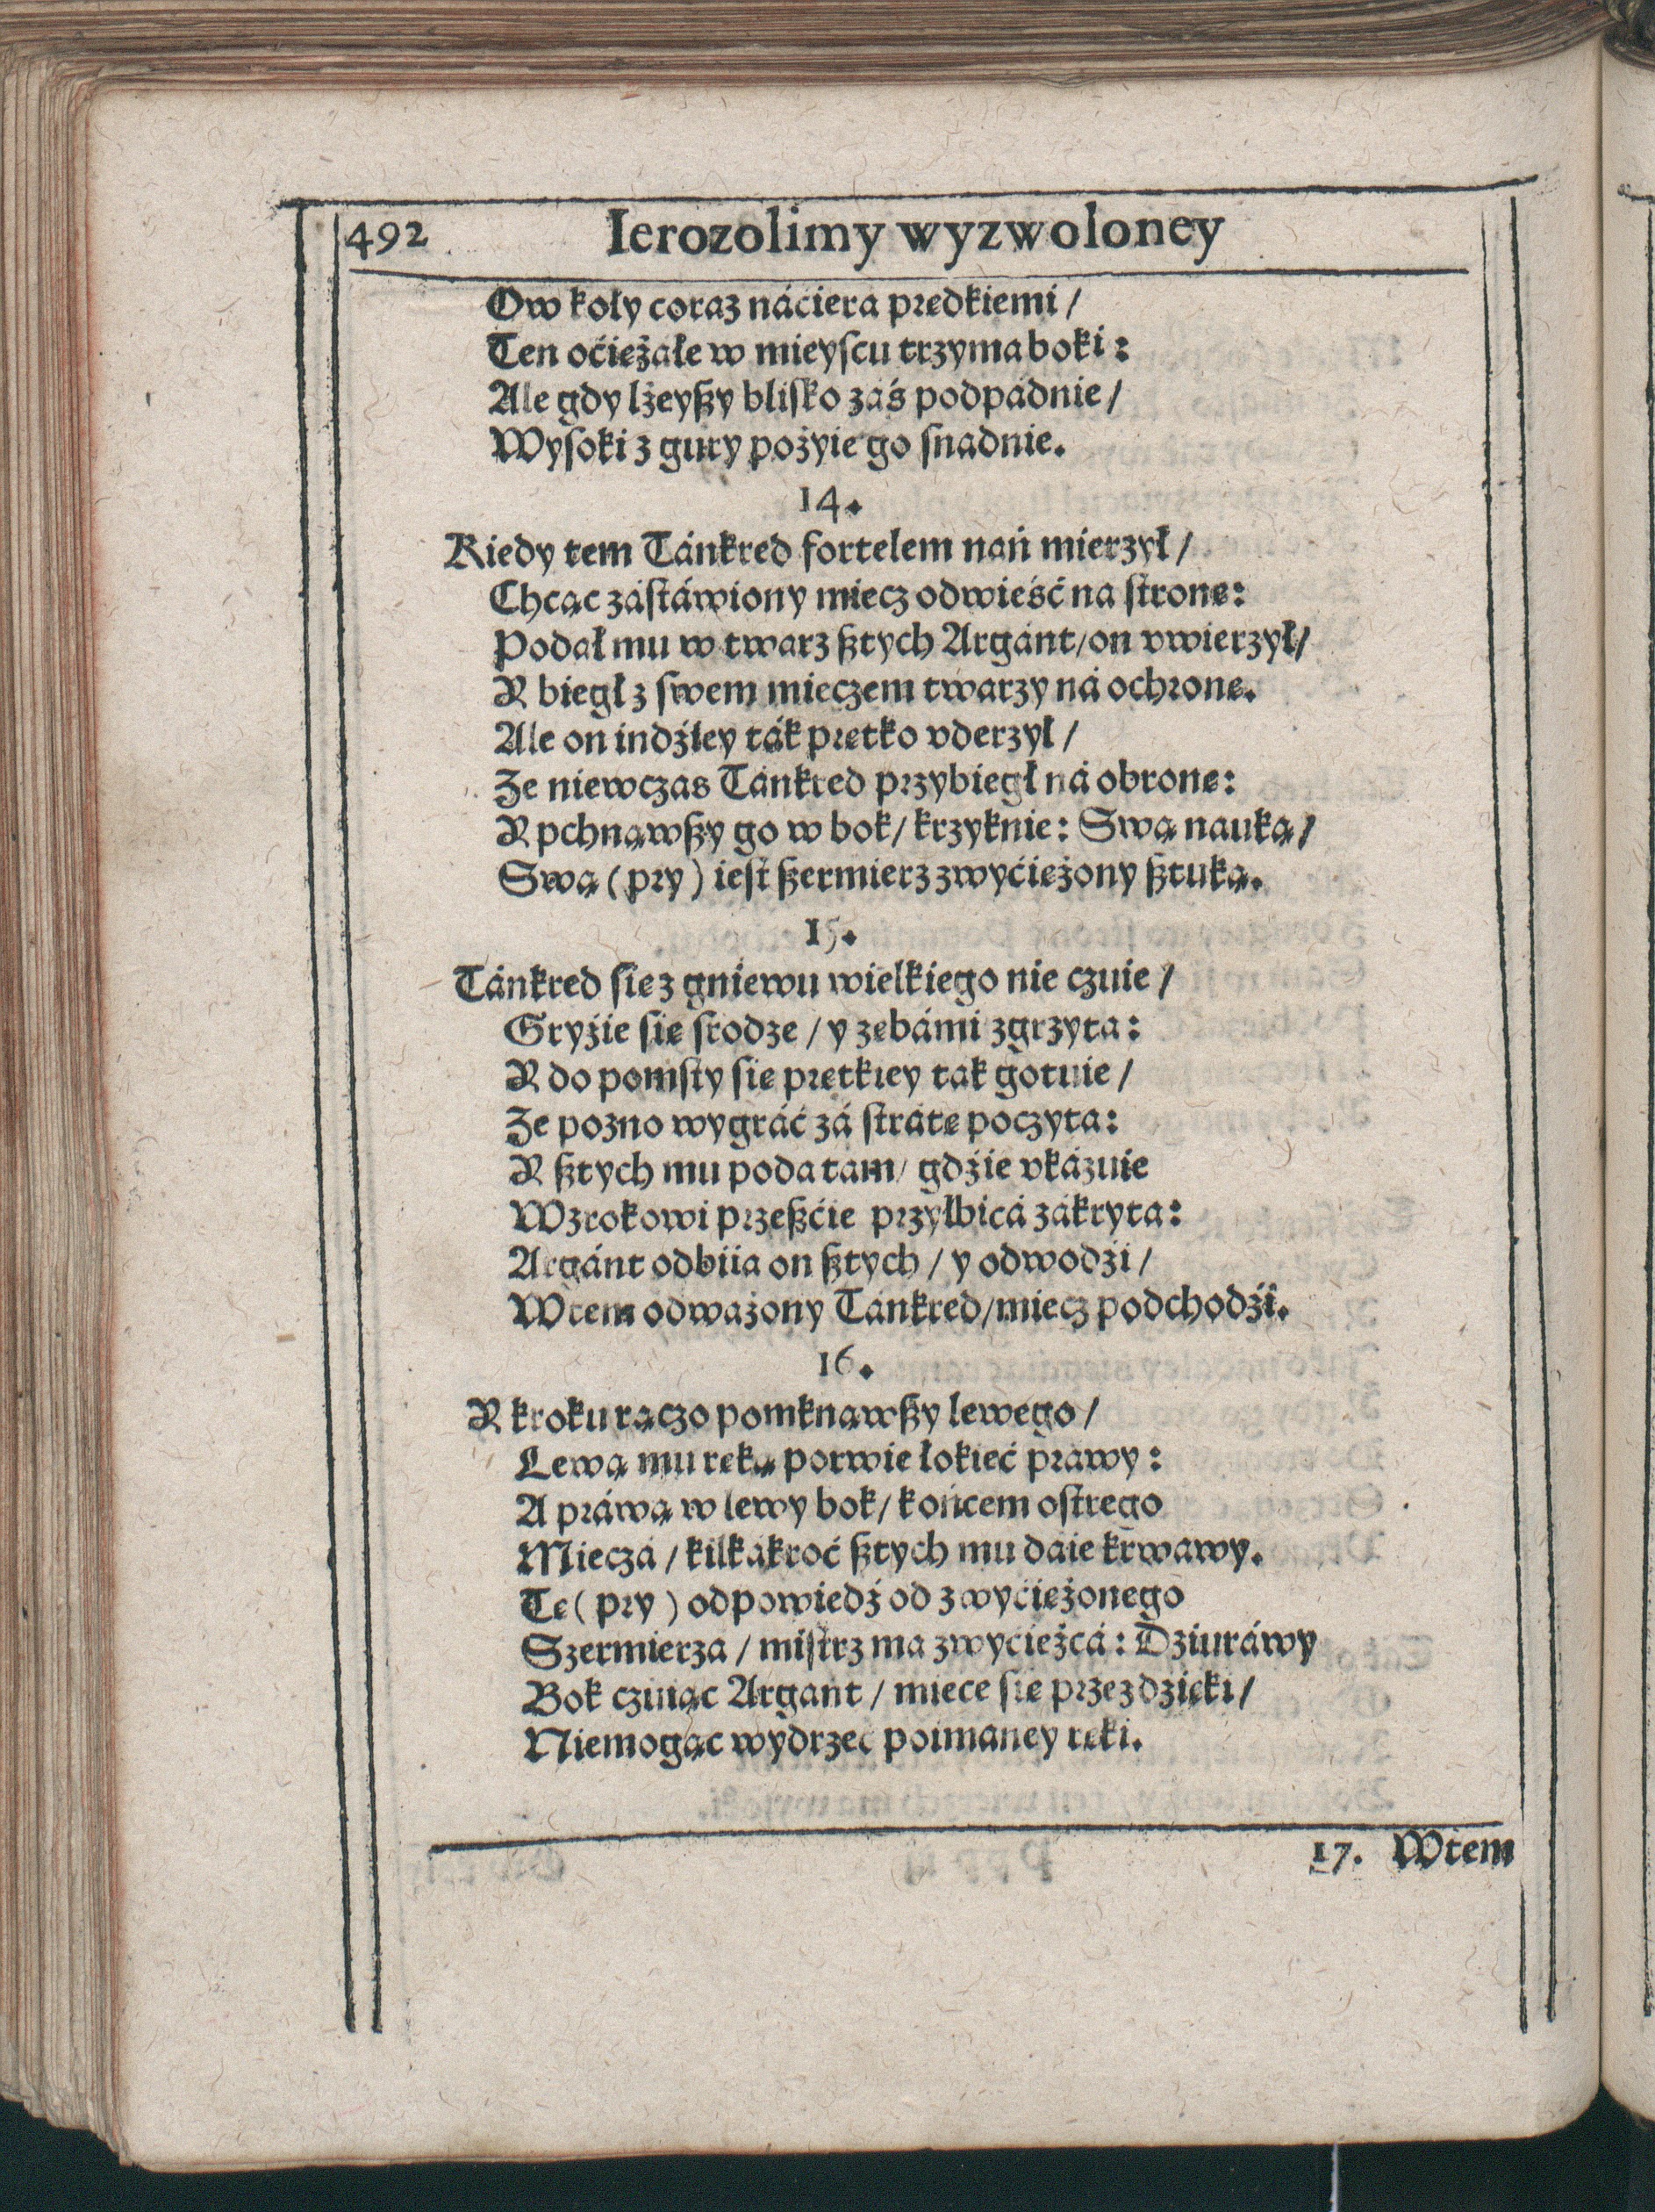 492 Ierozolimy wyzwoloney
Ow koły coraz náćiera prędkiemi /
Ten oćiężałe w mieyſcu trzyma boki:
Ale gdy lżeyßy bliſko záś podpádnie /
Wyſoki z gury pożyie go ſnadnie.
14.
Kiedy tem Tánkred fortelem nań mierzył /
Chcąc záſtáwiony miecz odwieść na ſtronę:
Podał mu w twarz ßtych Argánt / on vwierzył /
Y biegł z ſwem mieczem twarzy ná ochronę.
Ale on indźiey ták prętko vderzył /
Że niewczas Tánkred przybiegł ná obronę:
Y pchnąwßy go w bok / krzyknie: Swą nauką /
Swą (pry) ieſt ßermierz zwyćiężony ßtuką.
15.
Tánkred ſię z gniewu wielkiego nie czuie /
Gryźie ſię ſrodze / y zębámi zgrzyta:
Y do pomſty ſię prętkiey tak gotuie /
Że pozno wygráć zá ſtrátę poczyta:
Y ßtych mu poda tam / gdźie vkázuie
Wzrokowi przeßćie przyłbicá zákryta:
Argánt odbiia on ßtych / y odwodźi /
Wtem odważony Tánkred / miecz podchodźi.
16.
Y kroku rączo pomknąwßy lewego /
Lewą mu ręką porwie łokieć prawy:
A práwą w lewy bok / końcem oſtrego
Mieczá / kilkákroć ßtych mu daie krwawy.
Tę (pry) odpowiedź od zwyćiężonego
Szermierza / miſtrz ma zwyćiężcá: Dziuráwy
Bok czuiąc Argant / miece ſię przez dzięki /
Niemogąc wydrzeć poimaney ręki.
17. Wtem